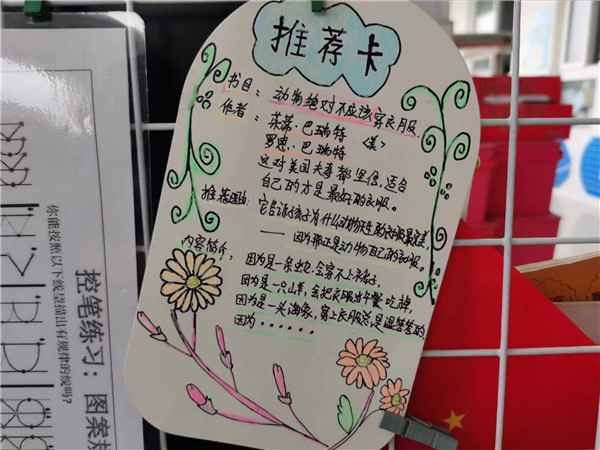 推荐卡
书目：动物绝对不应该穿衣服.
作者：茱蒂·巴瑞特〈美〉
罗恩·巴瑞特
这对美国夫妻都坚信,适合
自己的才是最好的衣服。
推荐理由：它告诉孩子为什么动物天生的衣服最完美,
——因为那正是动物自己的衣服。
内容简介：
因为是一条蛇,会穿不上裤子,
因为是一只山羊,会把衣服当午餐吃掉,
因为是一头海象,穿上衣服总是湿答答的,
因为······
控笔练习：图案
你能按照以下线呈描出有规律的线吗？